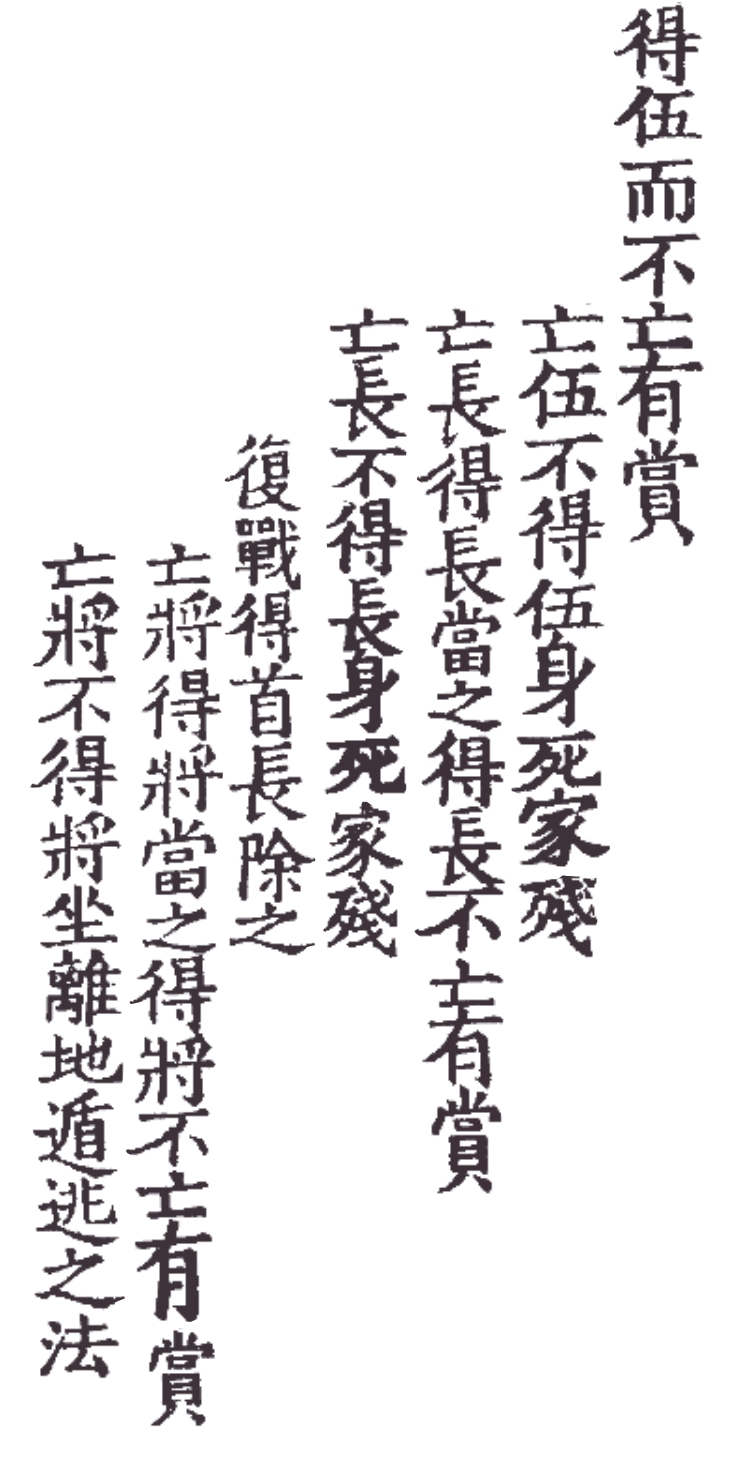 得伍而不亡有賞
亡伍不得伍身死家殘
亡長得長當之得長不亡有賞
亡長不得長身死家殘
復戰得首長除之
亡將得將當之得將不亡有賞
亡將不得將坐離地遁逃之法